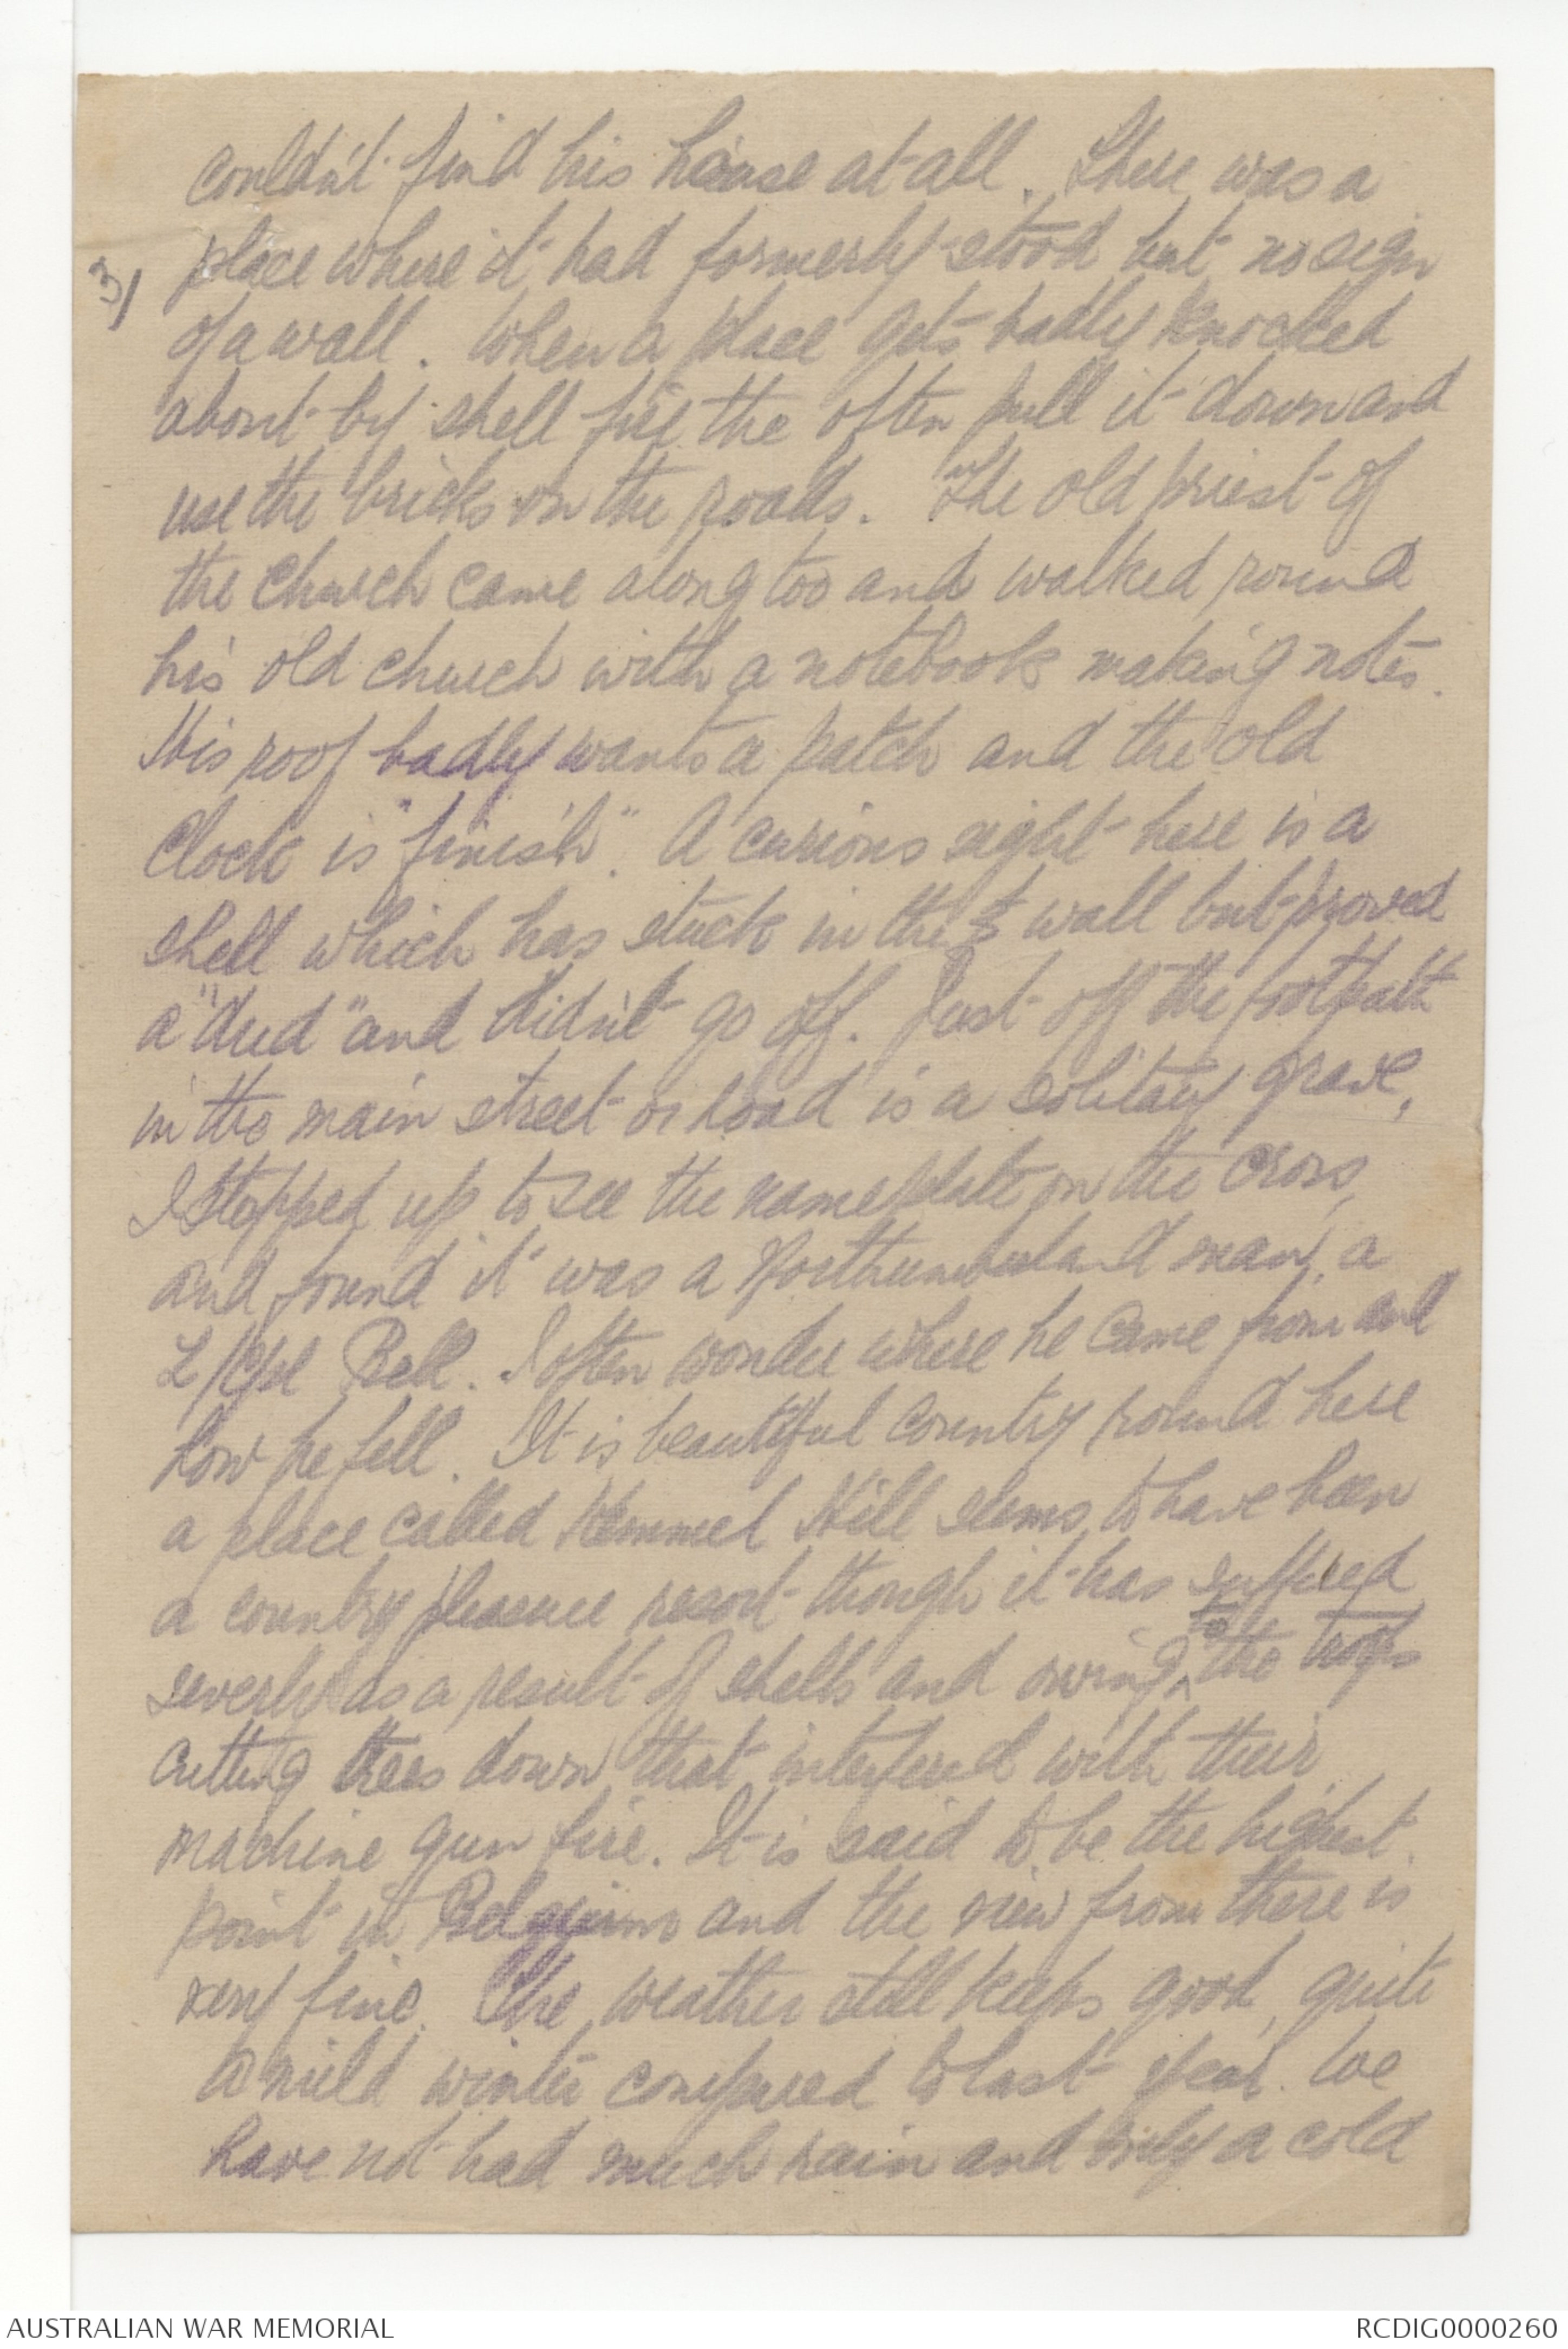 couldn't find his house at all. There was a
3/ place where it had formerly stood but no sign
of a wall. When a place gets badly knocked
about by shell fire the often pull it down and
use the bricks on the roads. The old priest of
the church came along too and walked round
his old church with a notebook making notes.
His roof badly wants a patch and the old
clock is "finish". A curious sight here is a
shell which has stuck in the wall but proved
a "dud" and didn't go off. Just off the footpath
in the main street or road is a solitary grave,
I stepped up to see the nameplate on the cross,
and found it was a Northumberland man, a
L/Cpl Bell. I often wonder where he came from and
how he fell. It is beautiful country round here
a place called Kemmel Hill seems to have been
a country pleasure resort though it has suffered
severly as a result of shells and owing to the troops
cutting trees down that interfered with their
machine gun fire. It is said to be the highest
point in Belgium and the view from there is
very fine. The weather still keeps good, quite
a mild winter compared to last year. We
have not had much rain and only a cold
AUSTRALIAN WAR MEMORIAL
RCDIG0000260